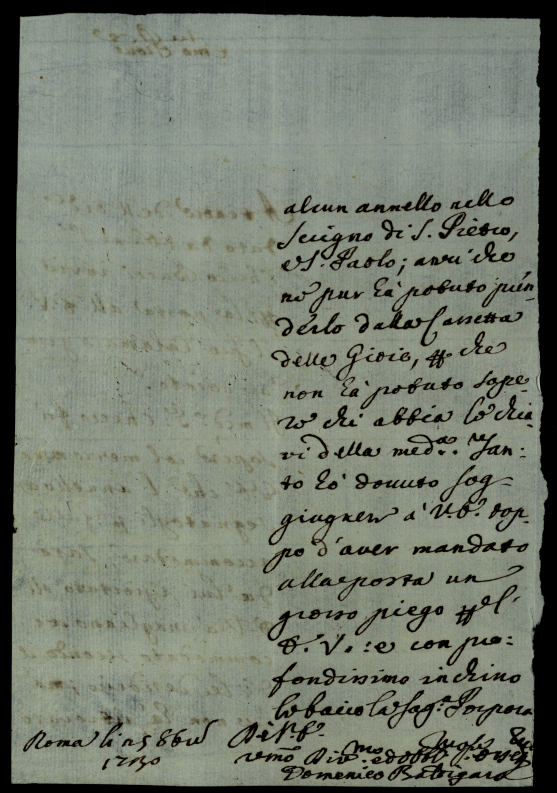 alcun annello nello
Scrigno di S. Pietro,
e S. Paolo; anzi che
ne pur hà potuto pren-
derlo dalla Cassetta
delle Gioie, che
non hà potuto sape
re chi abbia le chia
vi della med.a. Tan:
to hò douuto sog-
giugnere a' V. E. dop-
po d'auer mandato
alla posta un
grosso piego
E. V.: e con pro-
fondissimo inchino
le bacio la Sag.a Porpora
Roma li 25 8bre Di V. E.
1730
Domenico